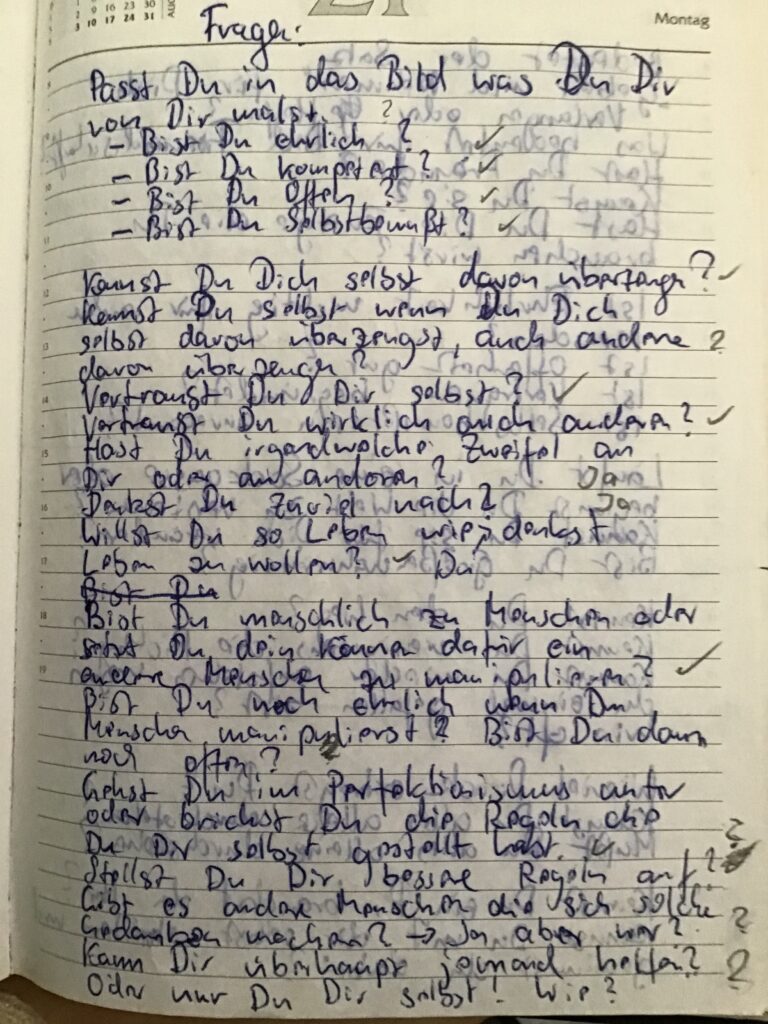 9 16 23 30
3 10 17 24 31
AUG
21
Montag
Fragen:
Passt Du in das Bild was Du Dir
von Dir malst. ?
– Bist Du ehrlich ? ✓
– Bist Du kompetent ? ✓
– Bist Du Offen ? ✓
– Bist Du Selbstbewußt ? ✓
Kannst Du Dich selbst davon überzeugen ? ✓
Kannst Du selbst wenn Du Dich
selbst davon überzeugst, auch andere ?
davon überzeugen ?
Vertraust Du Dir selbst ? ✓
Vertraust Du wirklich auch anderen ? ✓
Hast Du irgendwelche Zweifel an
Dir oder an anderen ? Ja
Denkst Du zuviel nach ? Ja
Willst Du so Leben wie denkst
Leben zu wollen ? ✓ Du
Bist Du
Bist Du menschlich zu Menschen oder
setzt Du dein können dafür ein
andere Menschen zu manipulieren ? ✓
Bist Du noch ehrlich wenn Du
Menschen manipulierst ? Bist Du dann
noch offen ?
Gehst Du im Perfektionismus unter
oder brichst Du die Regeln die
Du Dir selbst gestellt hast. ✓ ?
Stellst Du Dir bessere Regeln auf ?
Gibt es andere Menschen die sich solche
Gedanken machen ? → Ja aber wer ? ?
Kann Dir überhaupt jemand helfen ? ?
Oder nur Du Dir selbst ! Wie ?